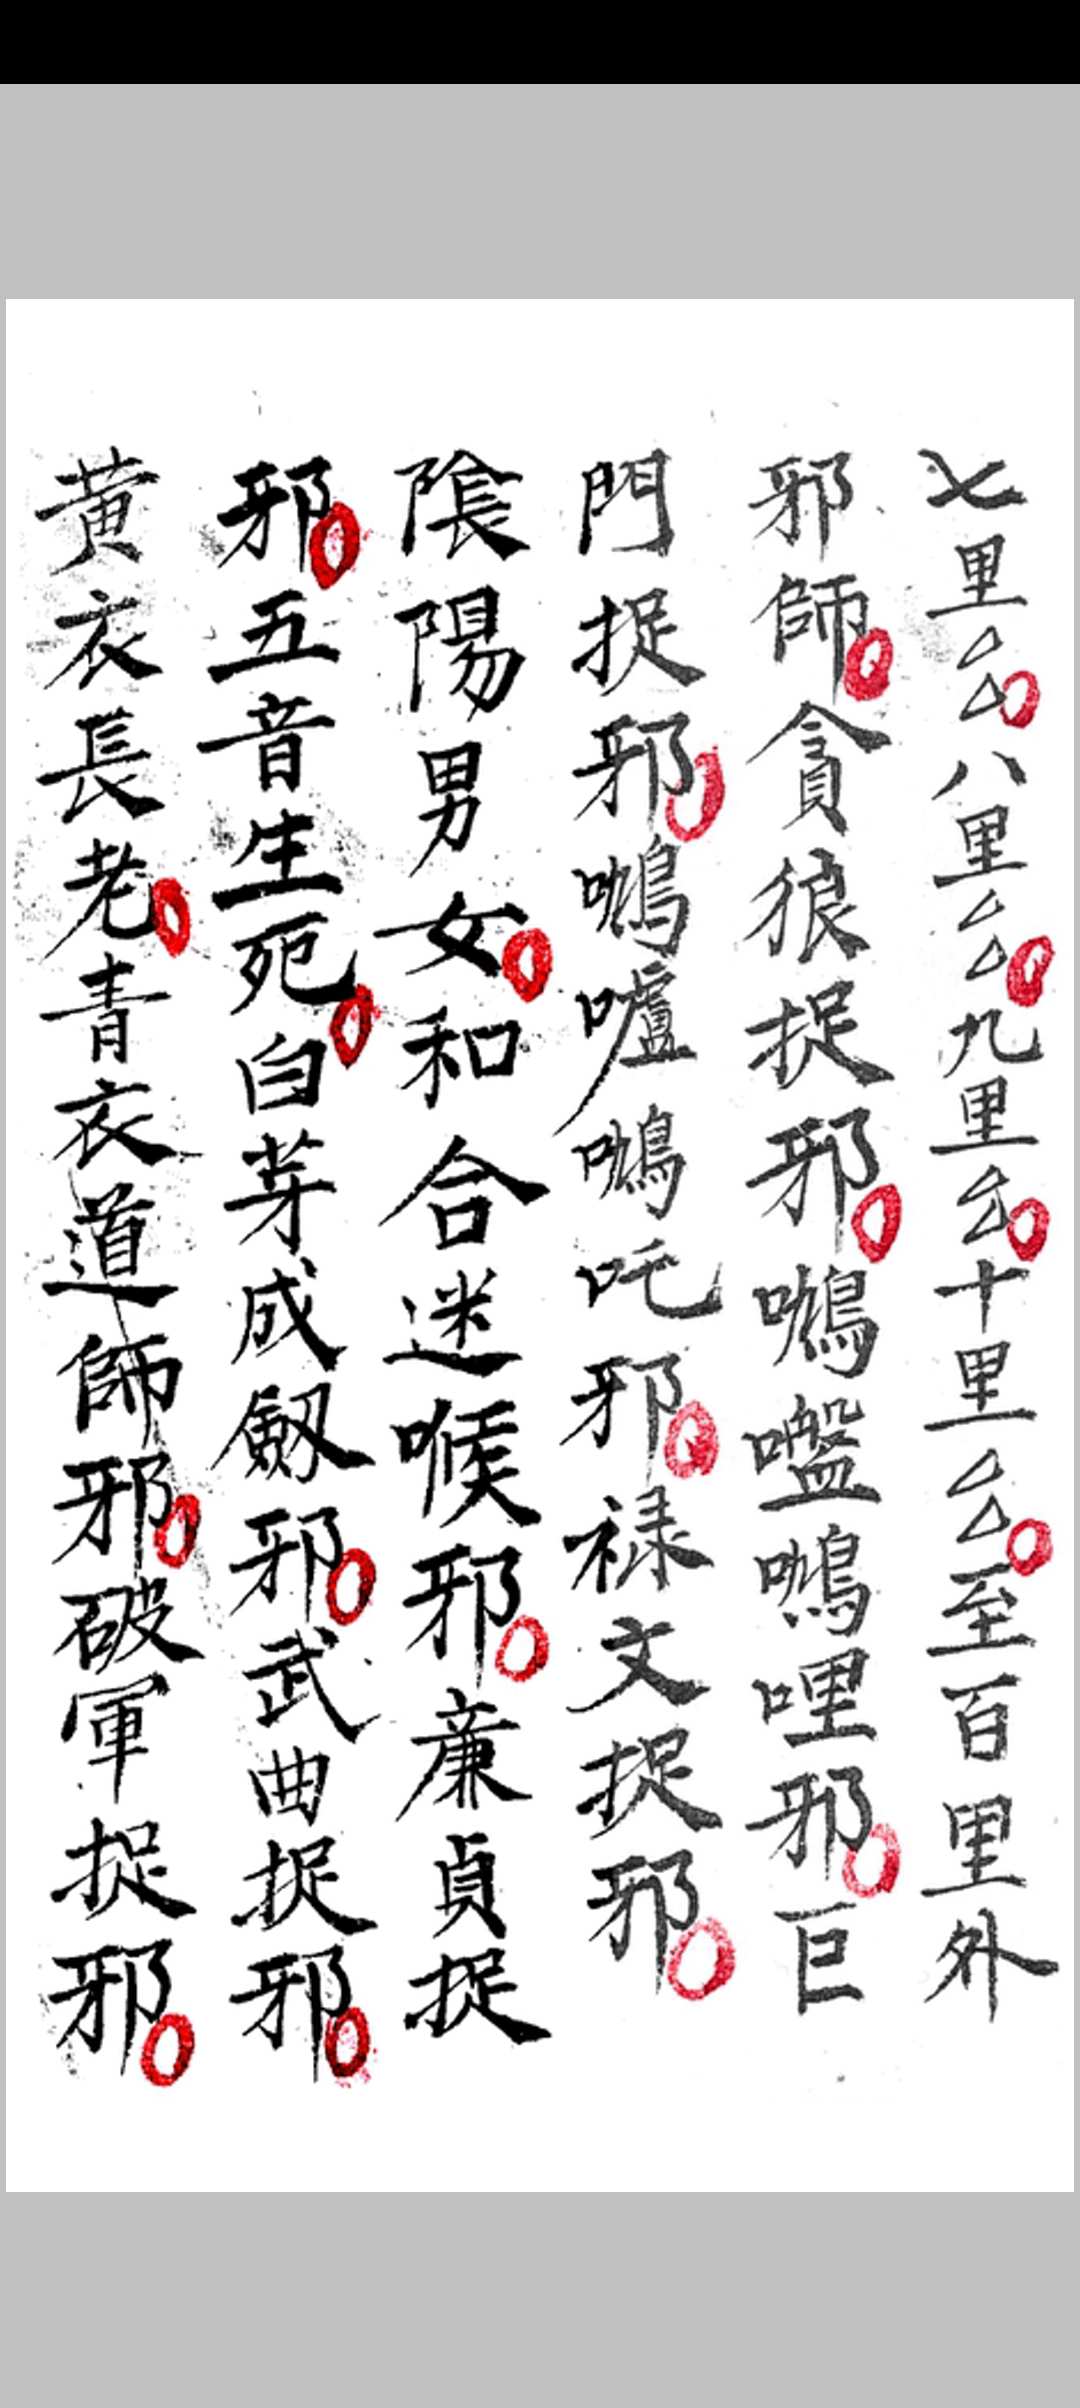 七里厶厶八里厶厶九里厶厶十里厶厶至百里外
邪師貪狼捉邪鳴嚂鳴哩邪巨
門捉邪鳴嚧鳴吒邪禄文捉邪
陰陽男女和合迷喉邪廉貞捉
邪五音生死白芽成劔邪武曲捉邪
黄衣長老青衣道師邪破軍捉邪